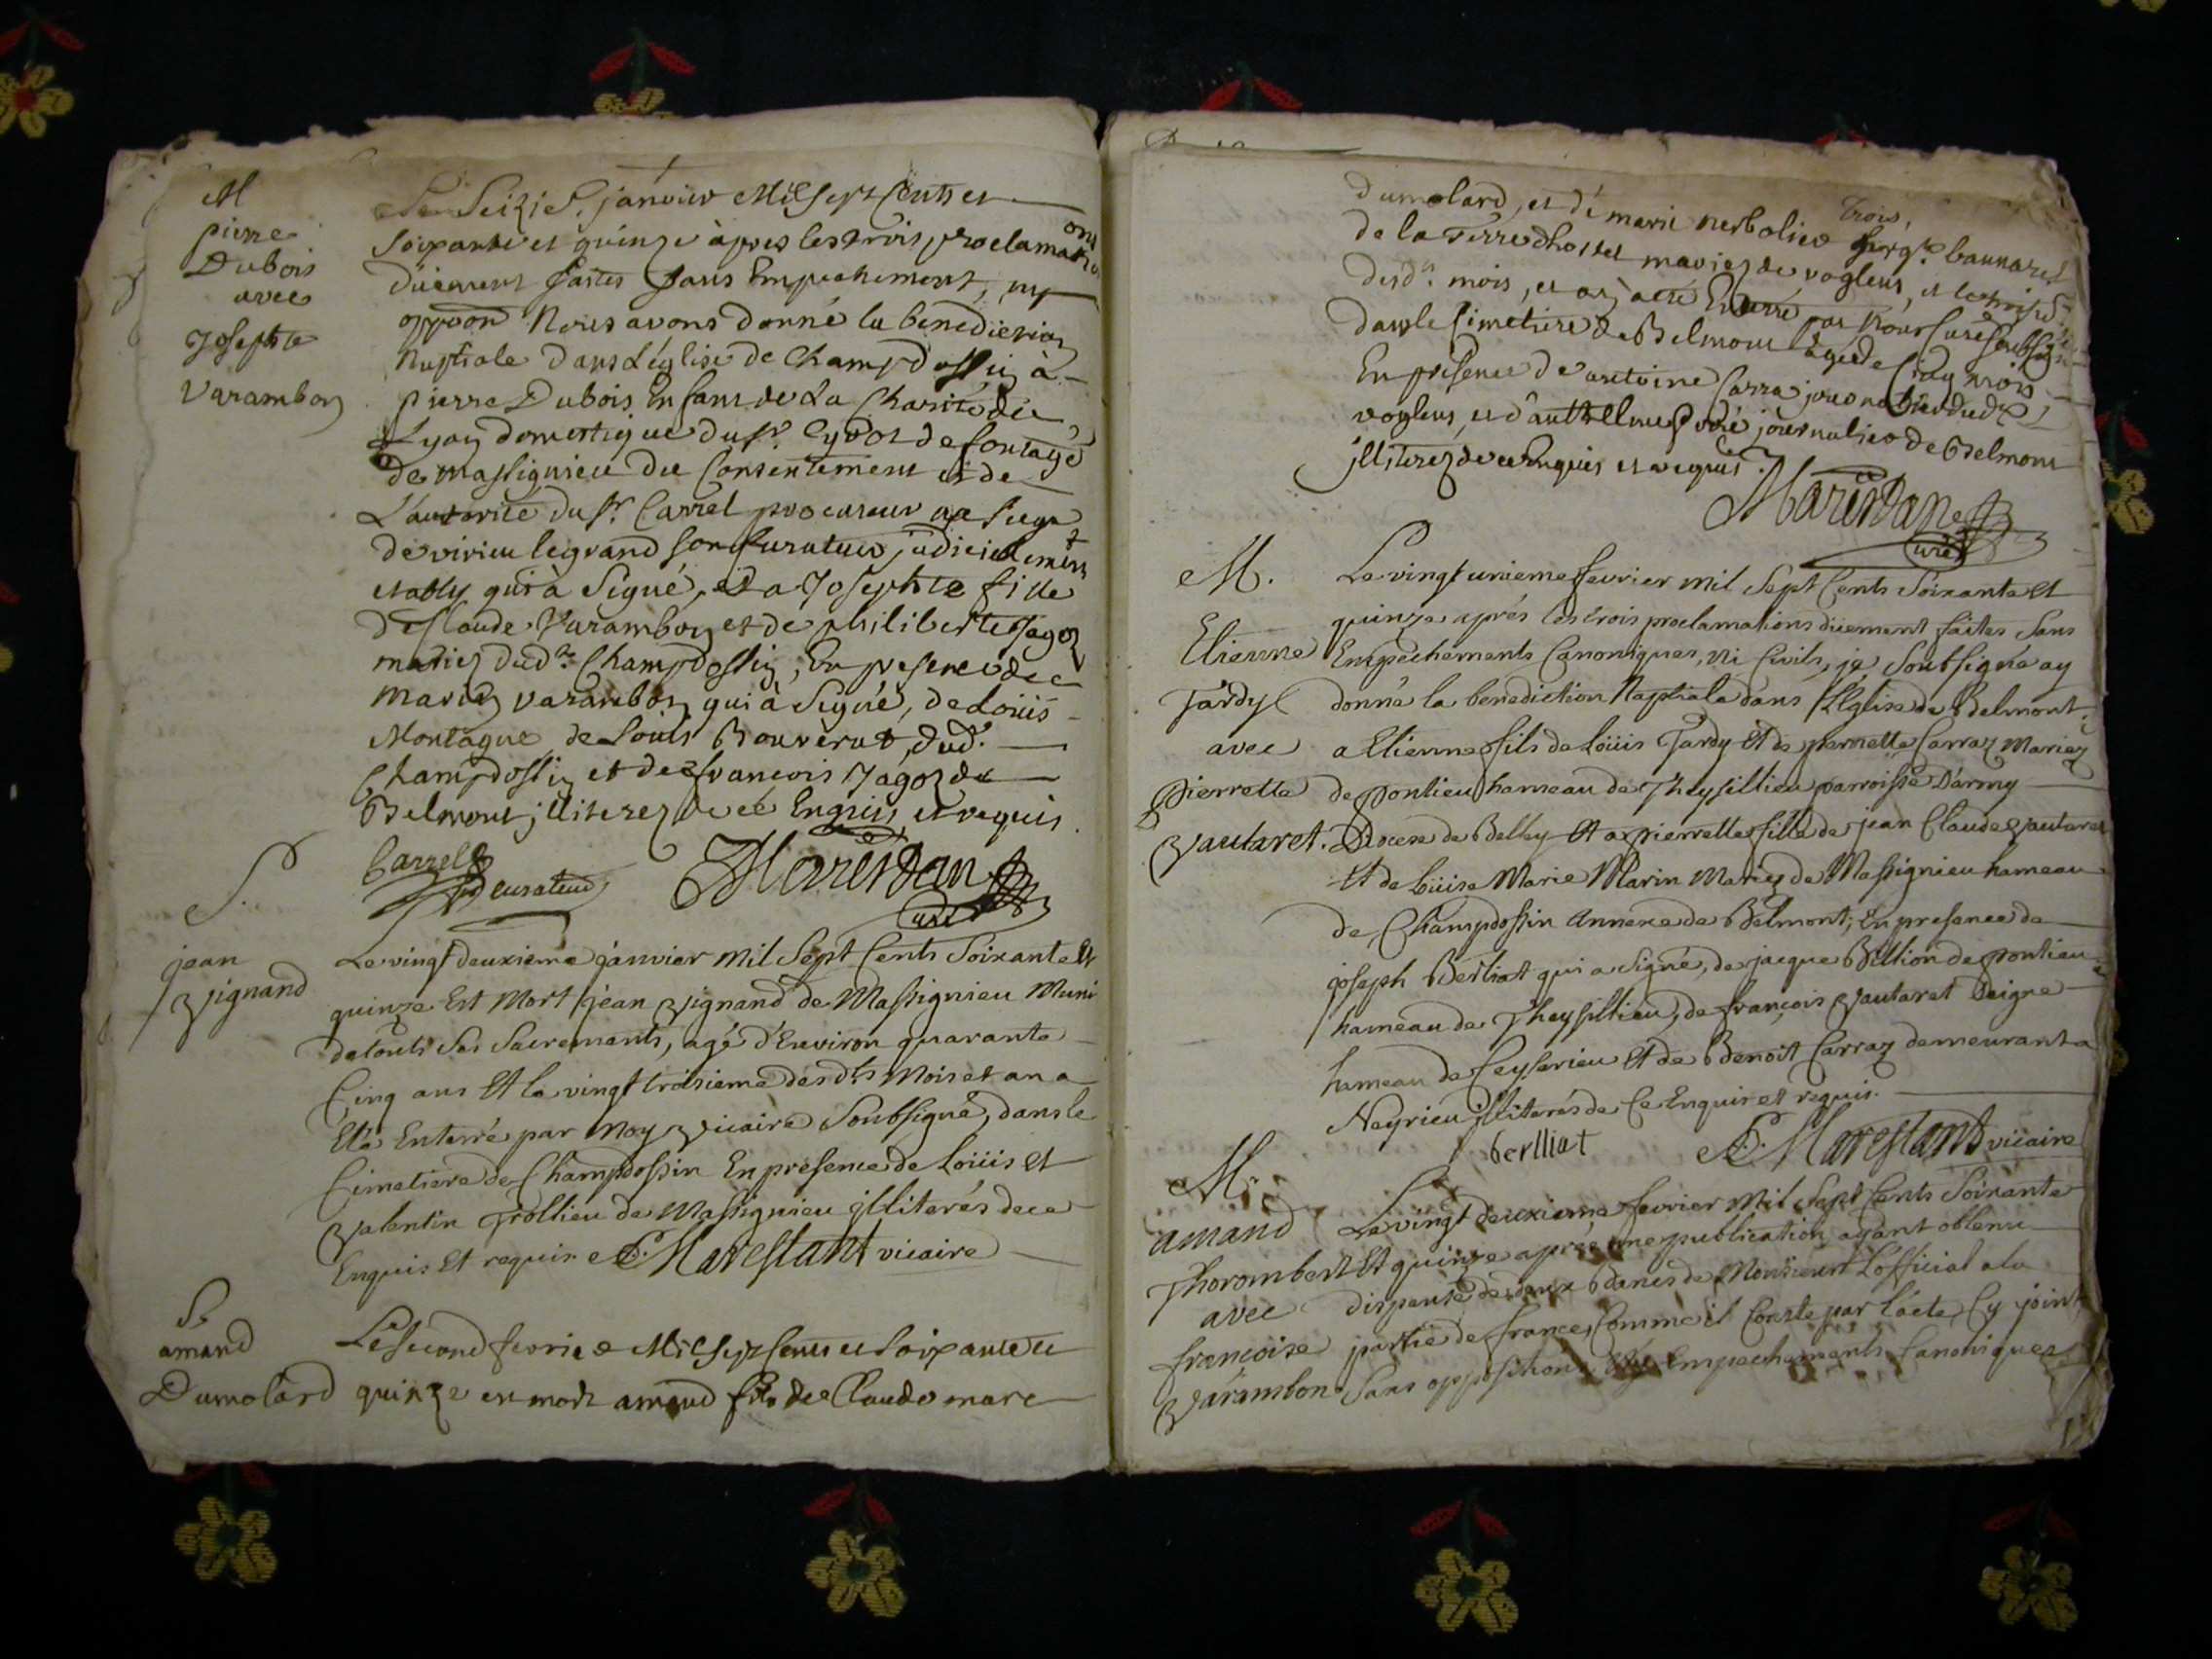 M
pierre
Dubois
avec
Josephte
Varambon
Le Seizie. janvier Mil Sept Cents et
Soixante et quinze après les trois proclamations
düement faites Sans Empechement, ny
oppoon Nous avons donné la benediction
Nuptiale dans L'église de Champdossin à
pierre Dubois Enfant de La Charité de
Lyon domestique du Sr.
de Massignieu du Consentement et de
L'autorité du Sr. Carrel procureur au Siege
de virieu legrand Son Curateur judiciellement
etably qui à Signé, et a Josephte fille
de Claude Varambon et de philiberte Jagoz
mariez dud. Champdossin; En presence de
Marin varambon qui à Signé, de Loüis
Montagne de Louis Bouverat, dud.
Champdossin et de francois Jagoz de
Belmont jlliterez de ce Enquis et requis
Carrel
curateur
Marestan
curé
S.
jean
Vignand
Le vingt deuxieme janvier mil Sept Cents Soixante Et
quinze Est Mort jean Vignand de Massignieu Muni
de touts Ses Sacrements, agé d'Environ quarante
Cinq ans Et le vingt troisieme desdts Mois et an a
Eté Enterré par Moy Vicaire Soubsigné, dans le
Cimetiere de Champdossin En presence de Loüis et
Valentin Trollieu de Massignieu jlliterés de ce
Enquis Et requis Marestant vicaire
S.
amand
Dumolard
Le Second fevrier Mil Sept Cents et Soixante et
quinze est mort amand fils de Claude marc
Dumolard, et de marie
de la Terre d'hostel mariez de vogleus, et le trois
desd. mois, et an, a eté Enterré par Nous Curé Soubsigné
dans le Cimetiere de Belmont agé de Cinq mois
En présence de antoine Carra journalier dud.
vogleus, et d'anthellme journalier de Belmont
jlliterez de ce Enquis et requis.
Marestan
curé
M.
Etienne
Tardy
avec
Pierrette
Vautaret.
Le vingt unieme fevrier mil Sept Cents Soixante et
quinze après les trois proclamations düement faites Sans
Empechements Canoniques, Ni Civils, je Soubsigné ay
donné la benediction Nuptiale dans L'Eglise de Belmont
a Etienne fils de Loüis Tardy et de pernette Carraz Mariez
de pontieu hameau de Theysillieu parroisse D'army
Diocese de Belley Et a pierrette fille de jean Claude Vautaret
Et de Loüise Marie Marin Mariez de Massignieu hameau
de Champdossin Annexe de Belmont; En presence de
joseph Berliat qui a Signé, de jacque Billion de pontieu
hameau de Theysillieu, de françois Vautaret
hameau de Ceyserieu Et de Benoit Carraz demeurant a
Neyrieu jlliterés de Ce Enquis et requis.
berlliat
Marestant vicaire
M.
amand
Thorambert
avec
francoise
Varambon
Le vingt deuxieme fevrier Mil Sept Cents Soixante
Et quinze après une publication ayant obtenu
dispense de deux Bancs de Monsieur L'official a la
partie de france, Comme il Conste par l'acte Cy joint
Sans opposition Ny Empechements Canoniques